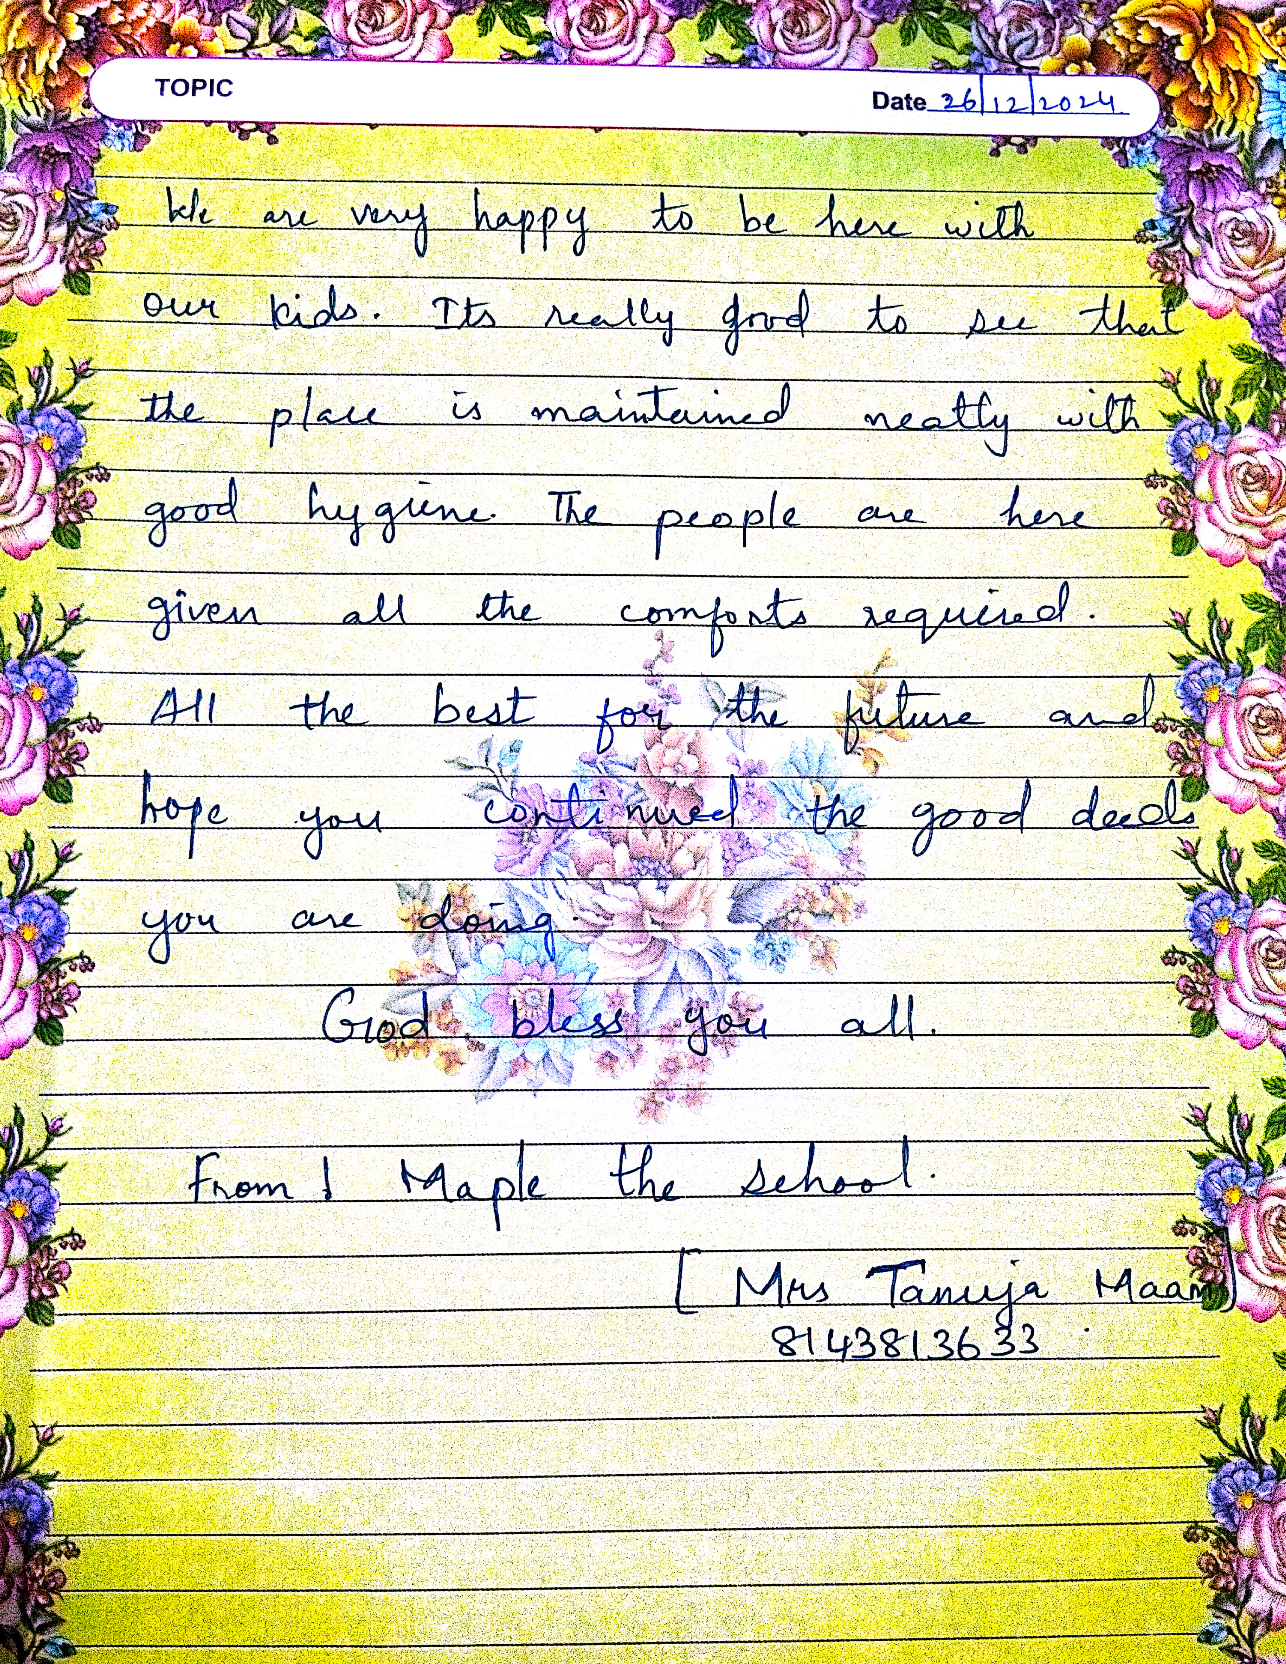 TOPIC
Date 26/12/2024
We are very happy to be here with
our kids. Its really good to see that
the place is maintained neatly with
good hygiene. The people are here
given all the comforts required.
All the best for the future and
hope you continued the good deeds
you are doing.
God bless you all.
From ! Maple the school.
[ Mrs Tanuja Maam ]
8143813633